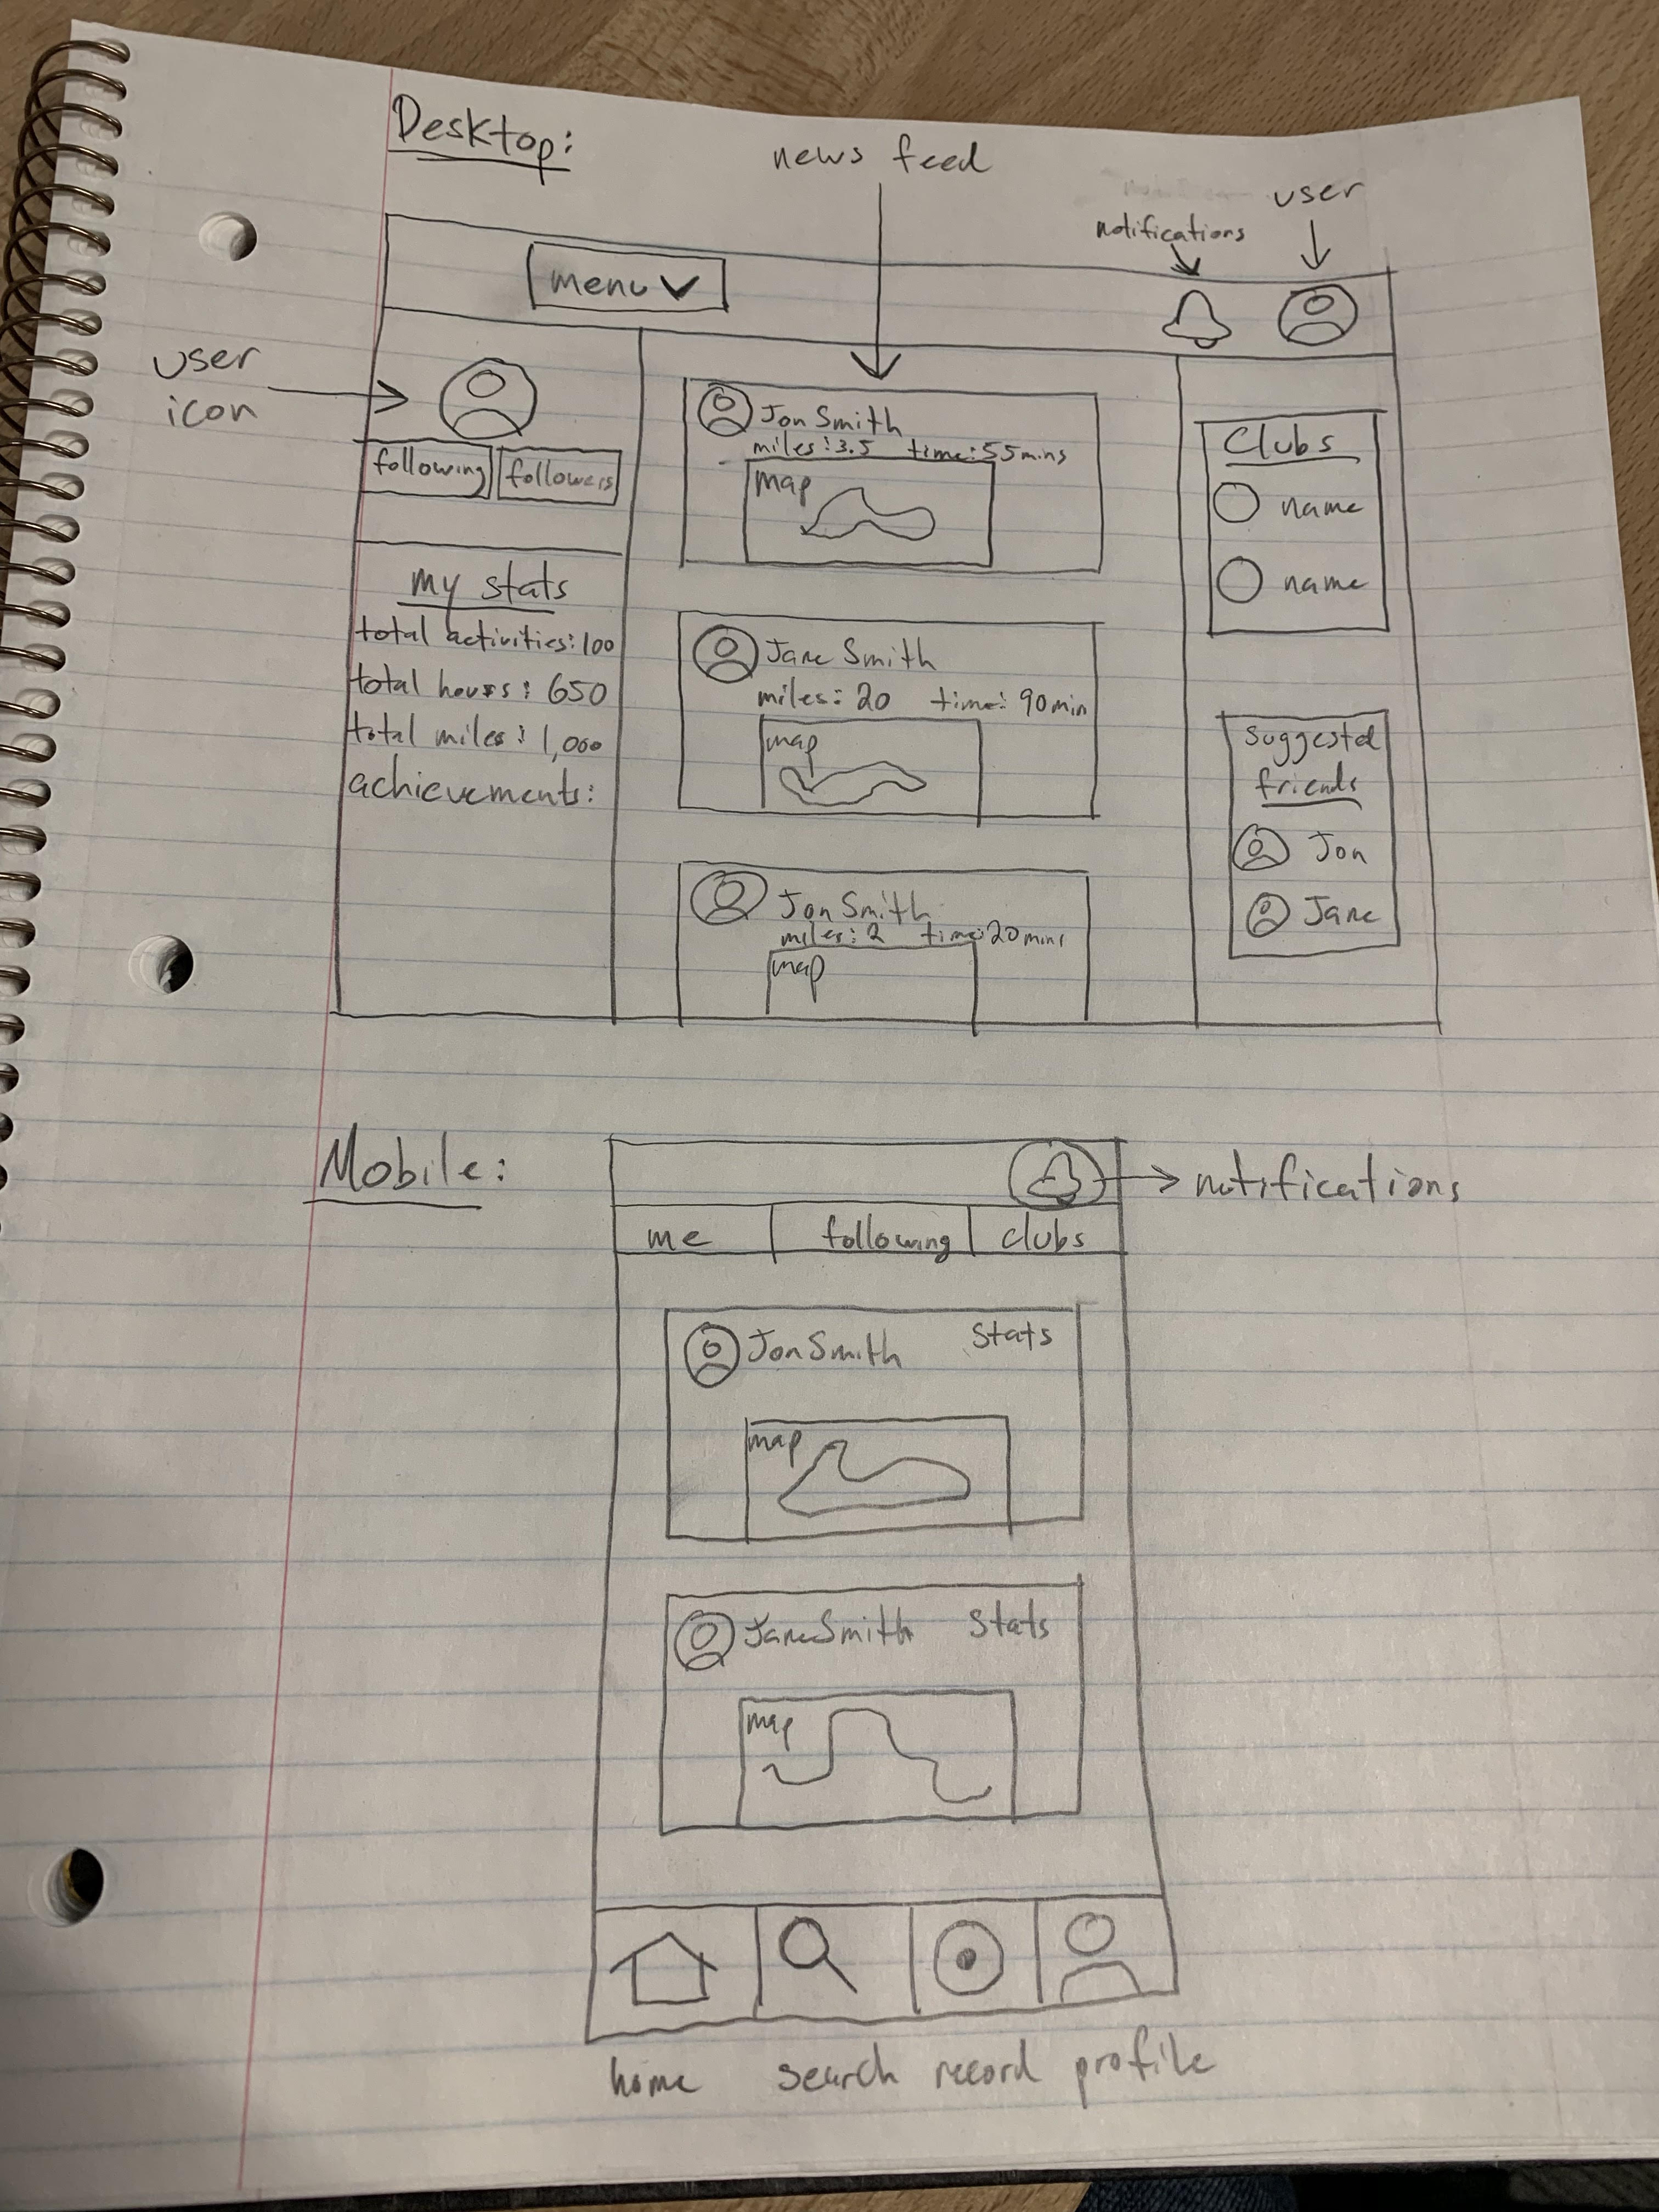 Desktop:
news feed
notifications
user
menu
user
icon
following
followers
my stats
total activities: 100
total hours: 650
total miles: 1,000
achievements:
Jon Smith
miles: 3.5 time: 55mins
map
Jane Smith
miles: 20 time: 90min
map
Jon Smith
miles: 2 time: 20mins
map
Clubs
name
name
suggested
friends
Jon
Jane
Mobile:
notifications
me following clubs
Jon Smith Stats
map
Jane Smith Stats
map
home search record profile